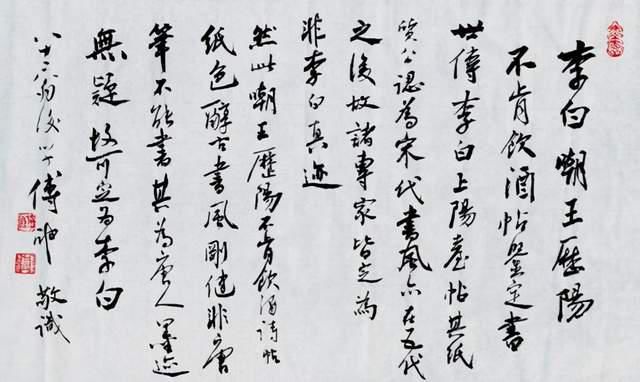 李白嘲王歷陽
不肯飲酒帖鑒定書
世傳李白上陽臺帖其紙
質公認為宋代書風亦在五代
之後故諸專家皆定為
非李白真迹
然此嘲王歷陽不肯飲酒詩帖
紙色酵古書風剛健非唐
筆不能書其為唐人墨迹
無疑故可定為李白
八十六翁後學傅申敬識